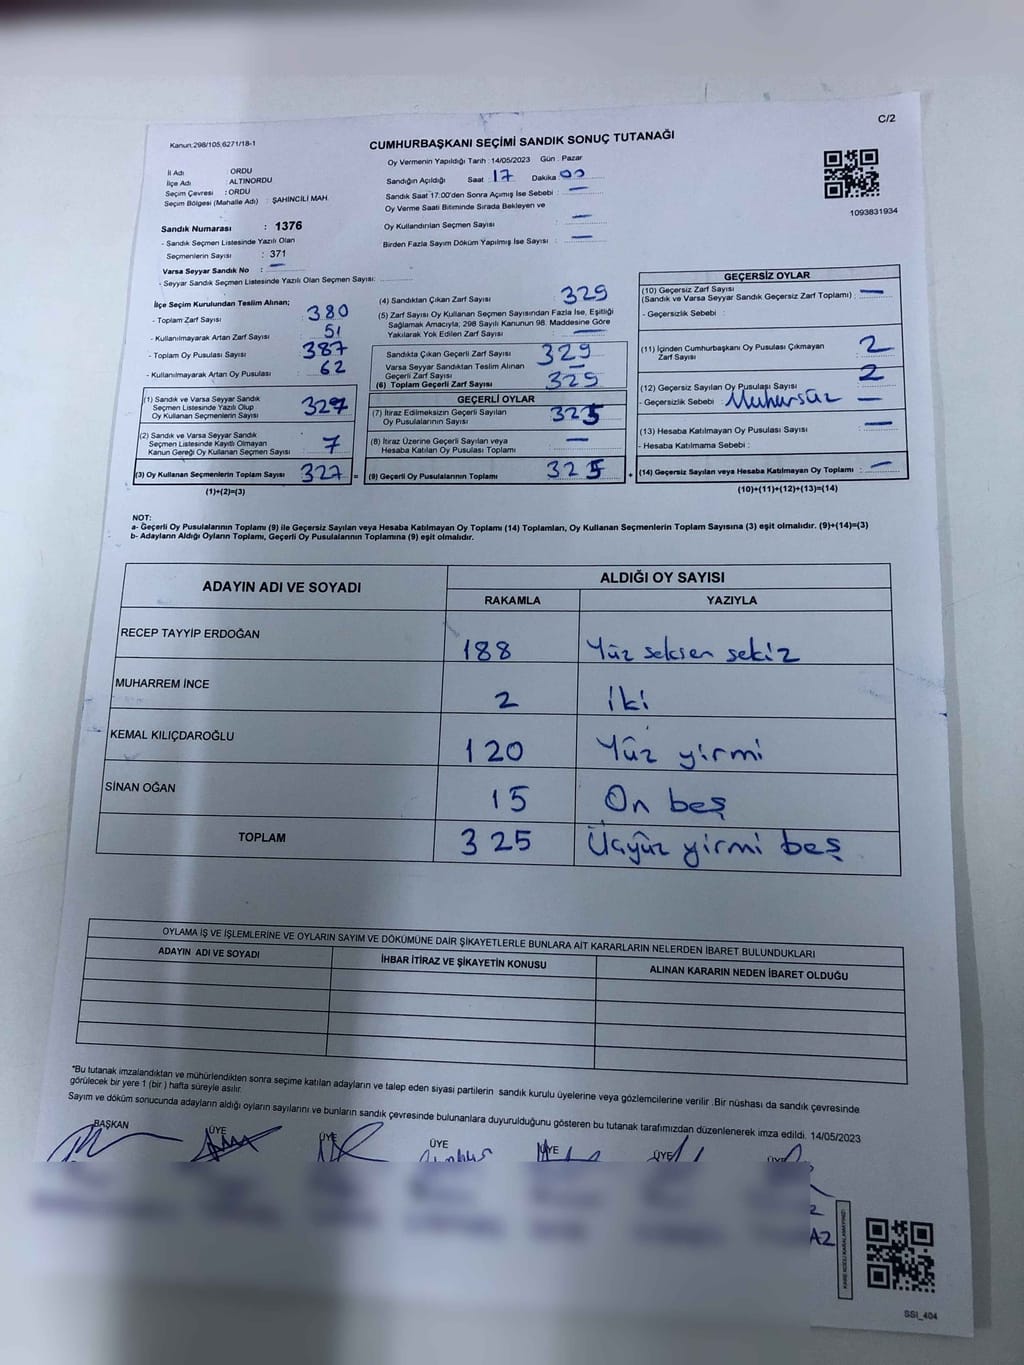 C/2
Kanun:298/105,6271/18-1
CUMHURBAŞKANI SEÇİMİ SANDIK SONUÇ TUTANAĞI
Oy Vermenin Yapıldığı Tarih : 14/05/2023 Gün : Pazar
İl Adı : ORDU
İlçe Adı : ALTINORDU
Seçim Çevresi : ORDU
Seçim Bölgesi (Mahalle Adı) : ŞAHİNCİLİ MAH.
Sandığın Açıldığı Saat : 17 Dakika 00
Sandık Saat 17:00'den Sonra Açımış İse Sebebi : —
Oy Verme Saati Bitiminde Sırada Bekleyen ve
Oy Kullandırılan Seçmen Sayısı : —
Birden Fazla Sayım Döküm Yapılmış İse Sayısı : —
1093831934
Sandık Numarası : 1376
- Sandık Seçmen Listesinde Yazılı Olan
Seçmenlerin Sayısı : 371
Varsa Seyyar Sandık No : —
- Seyyar Sandık Seçmen Listesinde Yazılı Olan Seçmen Sayısı:
İlçe Seçim Kurulundan Teslim Alınan;
- Toplam Zarf Sayısı : 380
- Kullanılmayarak Artan Zarf Sayısı : 51
- Toplam Oy Pusulası Sayısı : 387
- Kullanılmayarak Artan Oy Pusulası : 62
(1) Sandık ve Varsa Seyyar Sandık
Seçmen Listesinde Yazılı Olup
Oy Kullanan Seçmenlerin Sayısı : 327
(2) Sandık ve Varsa Seyyar Sandık
Seçmen Listesinde Kayıtlı Olmayan
Kanun Gereği Oy Kullanan Seçmen Sayısı : 7
(3) Oy Kullanan Seçmenlerin Toplam Sayısı : 327
(1)+(2)=(3)
(4) Sandıktan Çıkan Zarf Sayısı : 329
(5) Zarf Sayısı Oy Kullanan Seçmen Sayısından Fazla İse, Eşitliği
Sağlamak Amacıyla; 298 Sayılı Kanunun 98. Maddesine Göre
Yakılarak Yok Edilen Zarf Sayısı : —
Sandıkta Çıkan Geçerli Zarf Sayısı : 329
Varsa Seyyar Sandıktan Teslim Alınan
Geçerli Zarf Sayısı : —
(6) Toplam Geçerli Zarf Sayısı : 329
GEÇERLİ OYLAR
(7) İtiraz Edilmeksizin Geçerli Sayılan
Oy Pusulalarının Sayısı : 325
(8) İtiraz Üzerine Geçerli Sayılan veya
Hesaba Katılan Oy Pusulası Toplamı : —
(9) Geçerli Oy Pusulalarının Toplamı : 325
GEÇERSİZ OYLAR
(10) Geçersiz Zarf Sayısı
(Sandık ve Varsa Seyyar Sandık Geçersiz Zarf Toplamı) : —
- Geçersizlik Sebebi :
(11) İçinden Cumhurbaşkanı Oy Pusulası Çıkmayan
Zarf Sayısı : 2
(12) Geçersiz Sayılan Oy Pusulası Sayısı : 2
- Geçersizlik Sebebi : Mühürsüz —
(13) Hesaba Katılmayan Oy Pusulası Sayısı : —
- Hesaba Katılmama Sebebi :
(14) Geçersiz Sayılan veya Hesaba Katılmayan Oy Toplamı : —
(10)+(11)+(12)+(13)=(14)
NOT:
a- Geçerli Oy Pusulalarının Toplamı (9) ile Geçersiz Sayılan veya Hesaba Katılmayan Oy Toplamı (14) Toplamları, Oy Kullanan Seçmenlerin Toplam Sayısına (3) eşit olmalıdır. (9)+(14)=(3)
b- Adayların Aldığı Oyların Toplamı, Geçerli Oy Pusulalarının Toplamına (9) eşit olmalıdır.
ADAYIN ADI VE SOYADI
ALDIĞI OY SAYISI
RAKAMLA YAZIYLA
RECEP TAYYİP ERDOĞAN 188 Yüz seksen sekiz
MUHARREM İNCE 2 iki
KEMAL KILIÇDAROĞLU 120 Yüz yirmi
SİNAN OĞAN 15 On beş
TOPLAM 325 Üçyüz yirmi beş
OYLAMA İŞ VE İŞLEMLERİNE VE OYLARIN SAYIM VE DÖKÜMÜNE DAİR ŞİKAYETLERLE BUNLARA AİT KARARLARIN NELERDEN İBARET BULUNDUKLARI
ADAYIN ADI VE SOYADI İHBAR İTİRAZ VE ŞİKAYETİN KONUSU ALINAN KARARIN NEDEN İBARET OLDUĞU
"Bu tutanak imzalandıktan ve mühürlendikten sonra seçime katılan adayların ve talep eden siyasi partilerin sandık kurulu üyelerine veya gözlemcilerine verilir .Bir nüshası da sandık çevresinde
görülecek bir yere 1 (bir ) hafta süreyle asılır.
Sayım ve döküm sonucunda adayların aldığı oyların sayılarını ve bunların sandık çevresinde bulunanlara duyurulduğunu gösteren bu tutanak tarafımızdan düzenlenerek imza edildi. 14/05/2023
BAŞKAN ÜYE ÜYE ÜYE ÜYE ÜYE ÜYE
KARE KODU KARALAMAYINIZ!
SSI_404